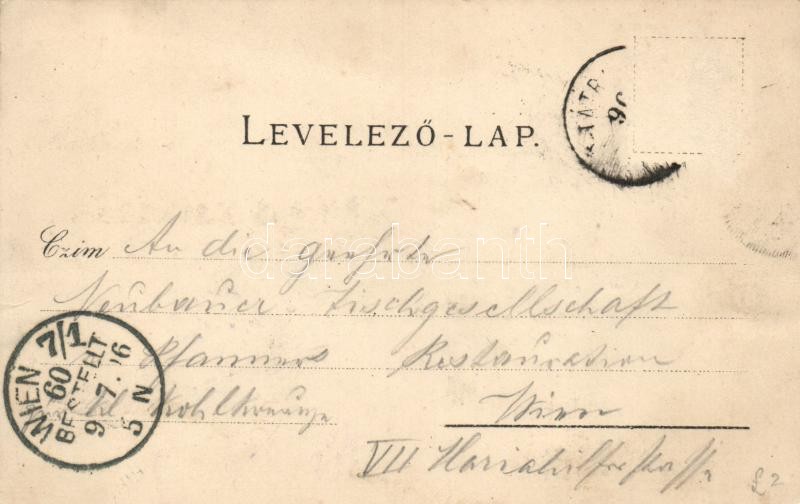 LEVELEZŐ-LAP.
Czim An die geehrte
Neubauer Tischgesellschaft
Pfanners Restauration
Wien
VII Mariahilferstrasse
WIEN 7/1
60
BESTELLT
9 7. 06
5 N
darabanth